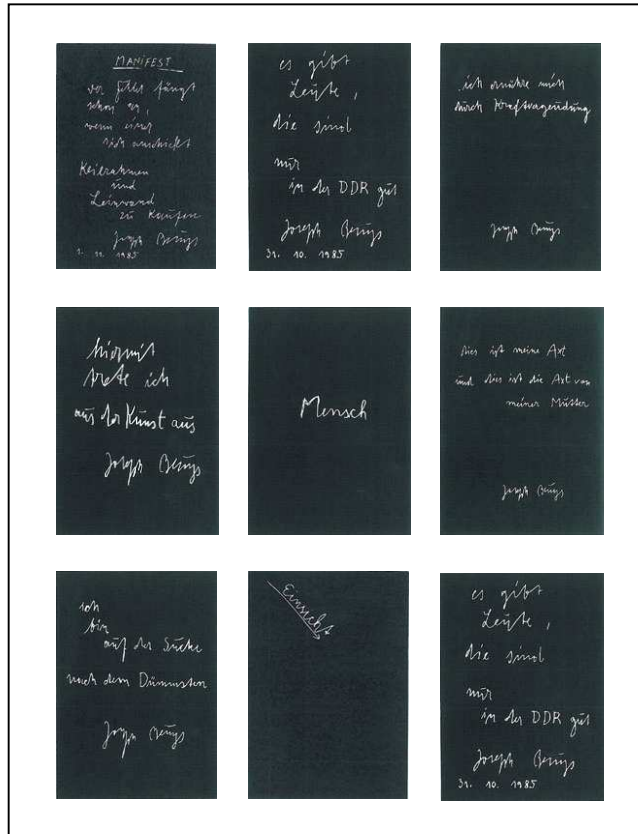 MANIFEST
der Fehler fängt
schon an,
wenn einer
sich anschickt
Keilrahmen
und
Leinwand
zu kaufen
Joseph Beuys
1. 11. 1985
es gibt
Leute,
die sind
nur
in der DDR gut
Joseph Beuys
31. 10. 1985
ich ernähre mich
durch Kraftvergeudung
Joseph Beuys
hiermit
trete ich
aus der Kunst aus
Joseph Beuys
Mensch
dies ist meine Axt
und dies ist die Axt von
meiner Mutter
Joseph Beuys
ich
bin
auf der Suche
nach dem Dümmsten
Joseph Beuys
Einsicht
es gibt
Leute,
die sind
nur
in der DDR gut
Joseph Beuys
31. 10. 1985